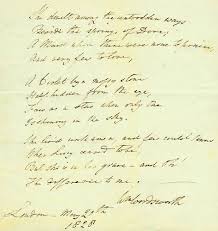 She dwelt among the untrodden ways
Beside the springs of Dove,
A Maid whom there were none to praise
And very few to love;
A Violet by a mossy stone
Half hidden from the eye,
Fair as a star when only one
Is shining in the sky.
She lived unknown, and few could know
When Lucy ceased to be;
But she is in her grave - and Oh!
The difference to me.
Wm Wordsworth
London - May
1828